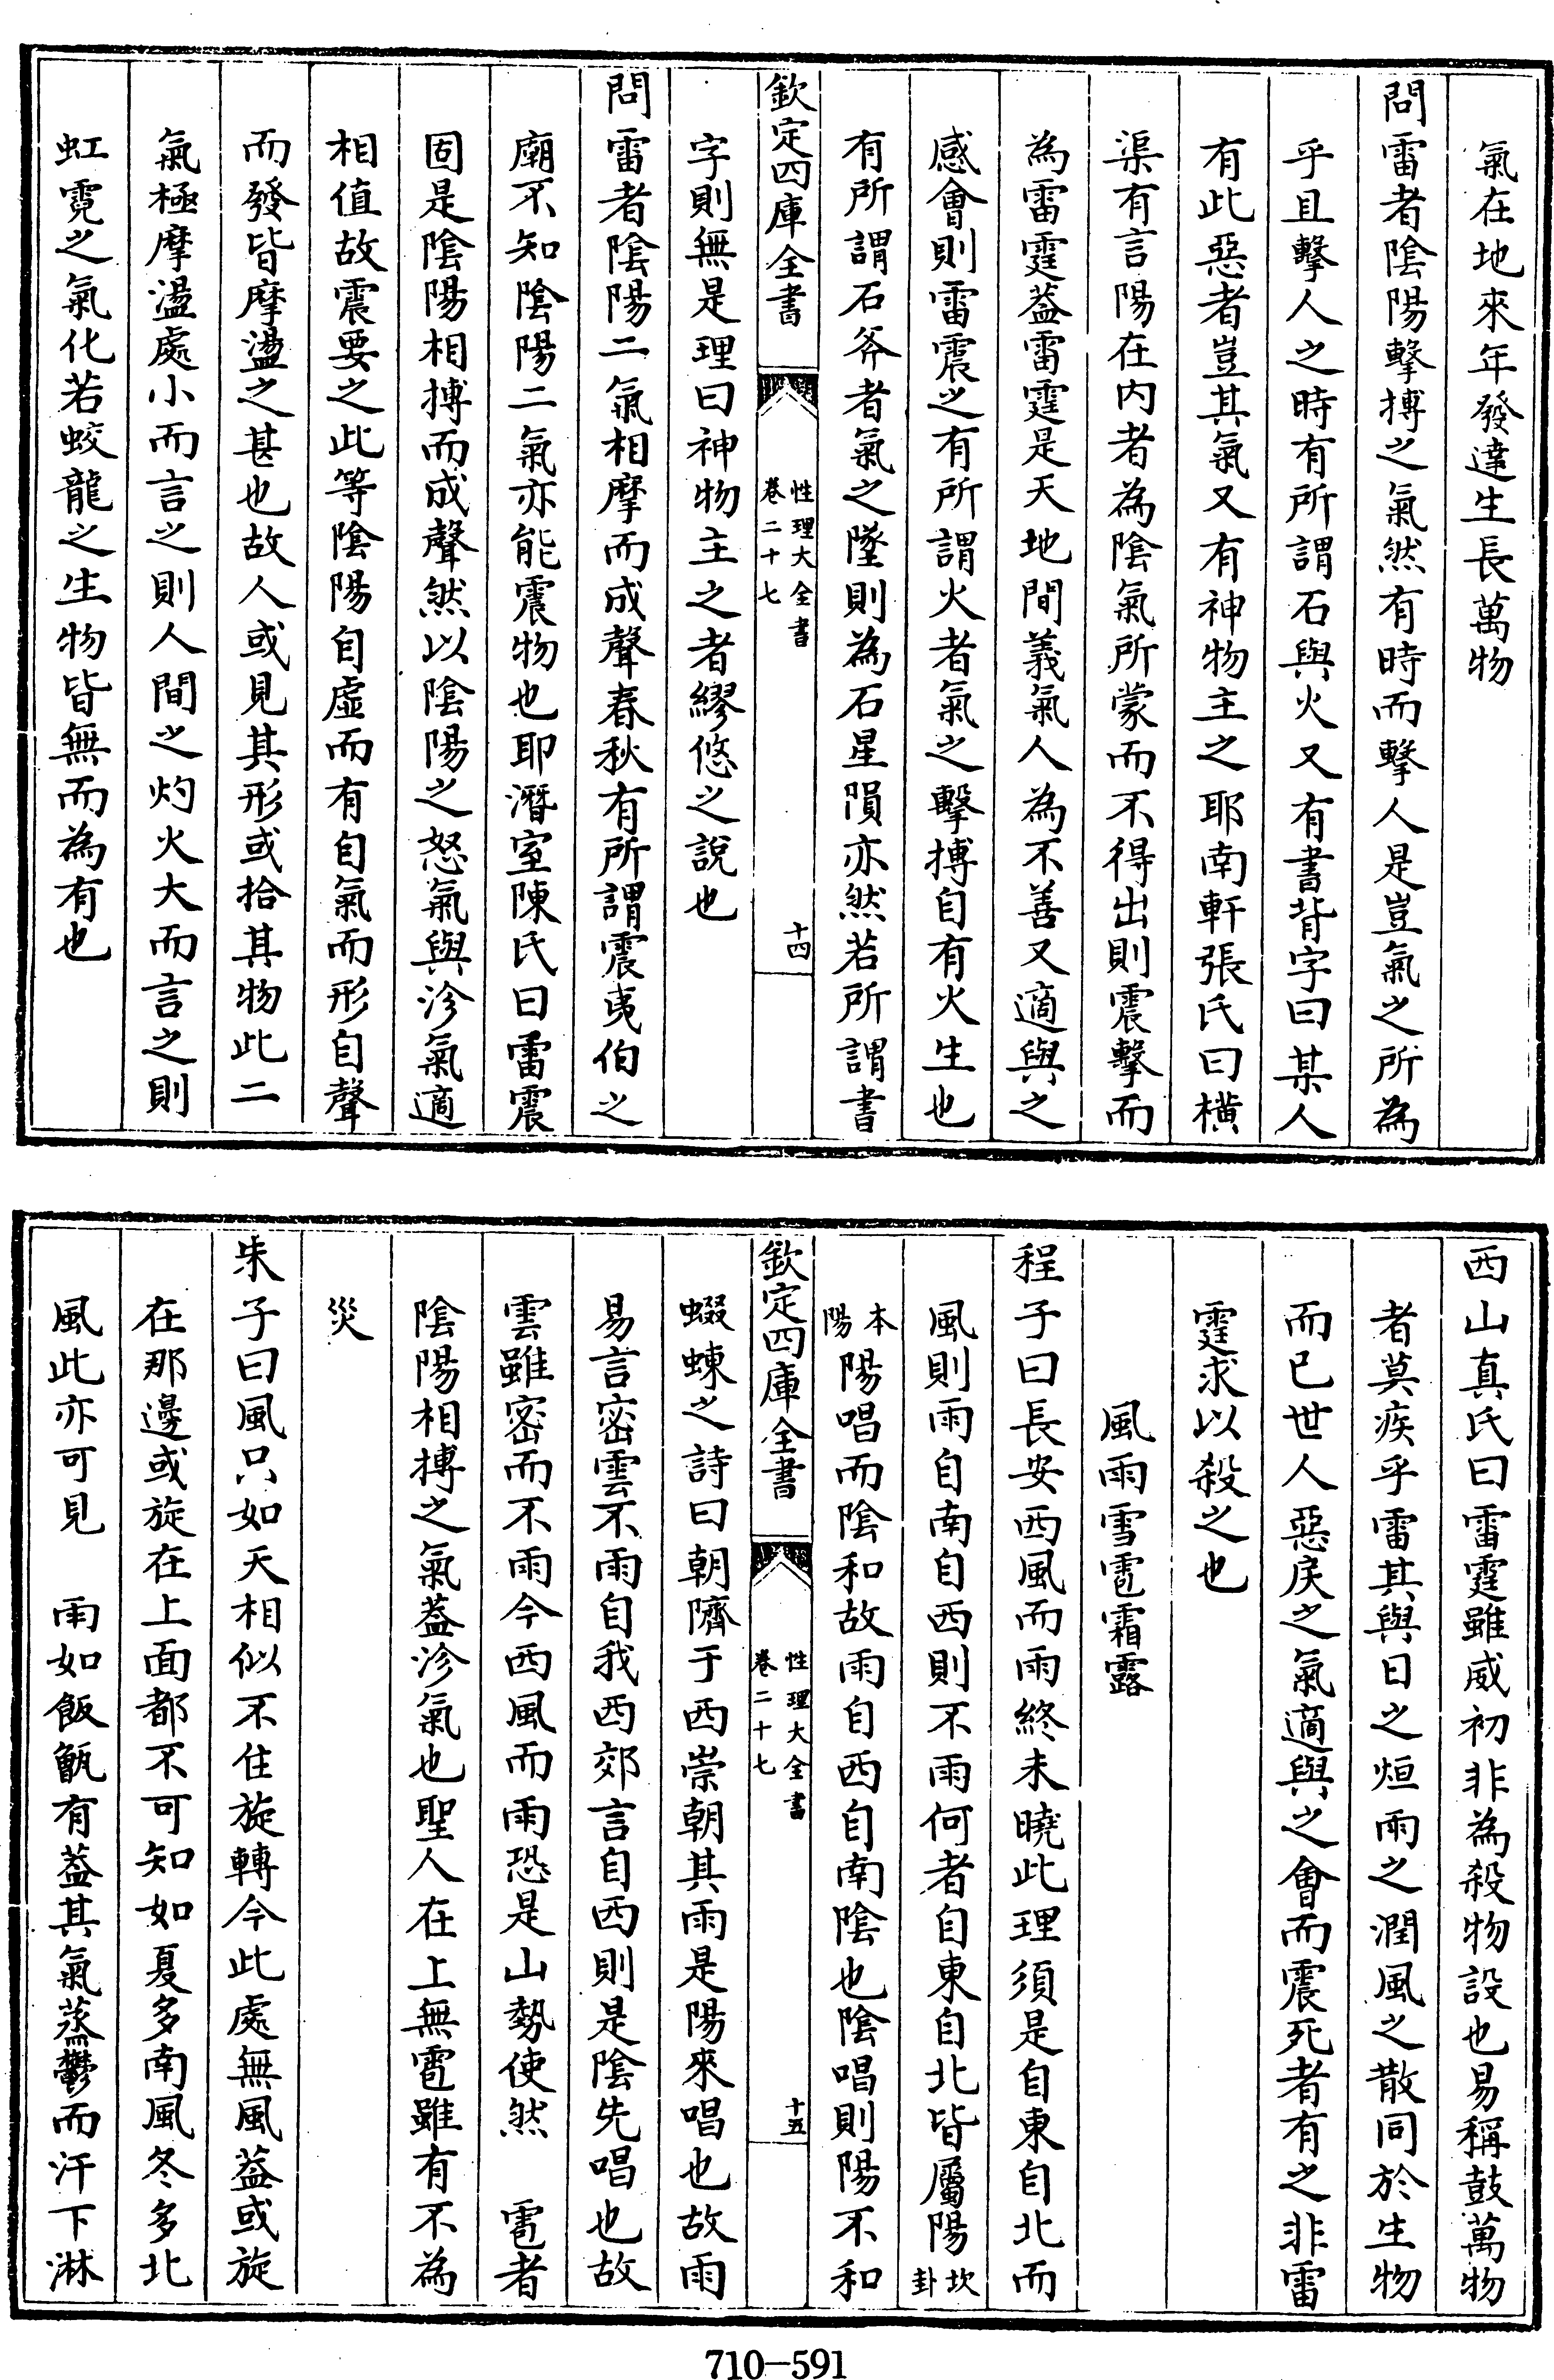 氣在地來年發達生長萬物
問雷者陰陽擊搏之氣然有時而擊人是豈氣之所為
乎且擊人之時有所謂石與火又有書背字曰某人
有此惡者豈其氣又有神物主之耶南軒張氏曰橫
渠有言陽在内者為陰氣所蒙而不得出則震擊而
為雷霆葢雷霆是天地間義氣人為不善又適與之
感會則雷震之有所謂火者氣之擊搏自有火生也
有所謂石斧者氣之墜則為石星隕亦然若所謂書
欽定四庫全書
性理大全書
卷二十七
十四
字則無是理曰神物主之者繆悠之說也
問雷者陰陽二氣相摩而成聲春秋有所謂震夷伯之
廟不知陰陽二氣亦能震物也耶潛室陳氏曰雷震
固是陰陽相搏而成聲然以陰陽之怒氣與沴氣適
相值故震要之此等陰陽自虛而有自氣而形自聲
而發皆摩盪之甚也故人或見其形或拾其物此二
氣極摩盪處小而言之則人間之灼火大而言之則
虹霓之氣化若蛟龍之生物皆無而為有也
西山真氏曰雷霆雖威初非為殺物設也易稱鼓萬物
者莫疾乎雷其與日之烜雨之潤風之散同於生物
而已世人惡戾之氣適與之會而震死者有之非雷
霆求以殺之也
風雨雪雹霜露
程子曰長安西風而雨終未曉此理須是自東自北而
風則雨自南自西則不雨何者自東自北皆屬陽坎卦
本陽陽唱而陰和故雨自西自南陰也陰唱則陽不和
欽定四庫全書
性理大全書
卷二十七
十五
蝃蝀之詩曰朝隮于西崇朝其雨是陽來唱也故雨
易言密雲不雨自我西郊言自西則是陰先唱也故
雲雖密而不雨今西風而雨恐是山勢使然　雹者
陰陽相搏之氣葢沴氣也聖人在上無雹雖有不為
災
朱子曰風只如天相似不住旋轉今此處無風葢或旋
在那邊或旋在上面都不可知如夏多南風冬多北
風此亦可見　雨如飯甑有葢其氣蒸鬱而汗下淋
710-591